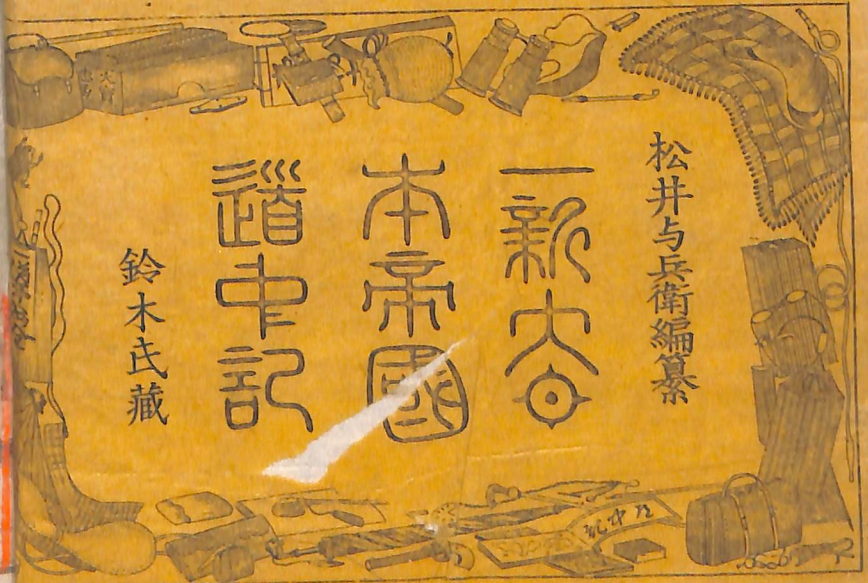 松井与兵衛編纂
一新大日
本帝國
道中記
鈴木氏藏
道中記